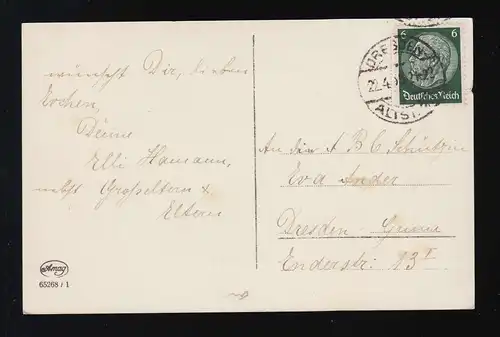 wünscht Dir, lieben
Evchen,
Deine
Elli Hamann,
nebst Großeltern +
Eltern
Amag
65268 / 1
DRESDEN
22.4.
ALTST.
6 6
Deutsches Reich
An die A B C Schützin
Eva Ander
Dresden-Gruna
Enderstr: 13 I